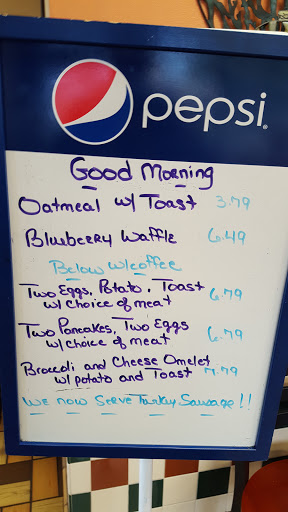 pepsi
Good Morning
Oatmeal w/ Toast 3.79
Blueberry Waffle 6.49
Below w/coffee
Two Eggs, Potato, Toast
w/ choice of meat 6.79
Two Pancakes, Two Eggs
w/ choice of meat 6.79
Broccoli and Cheese Omelet
w/ potato and Toast 7.79
We now Serve Turkey Sausage!!